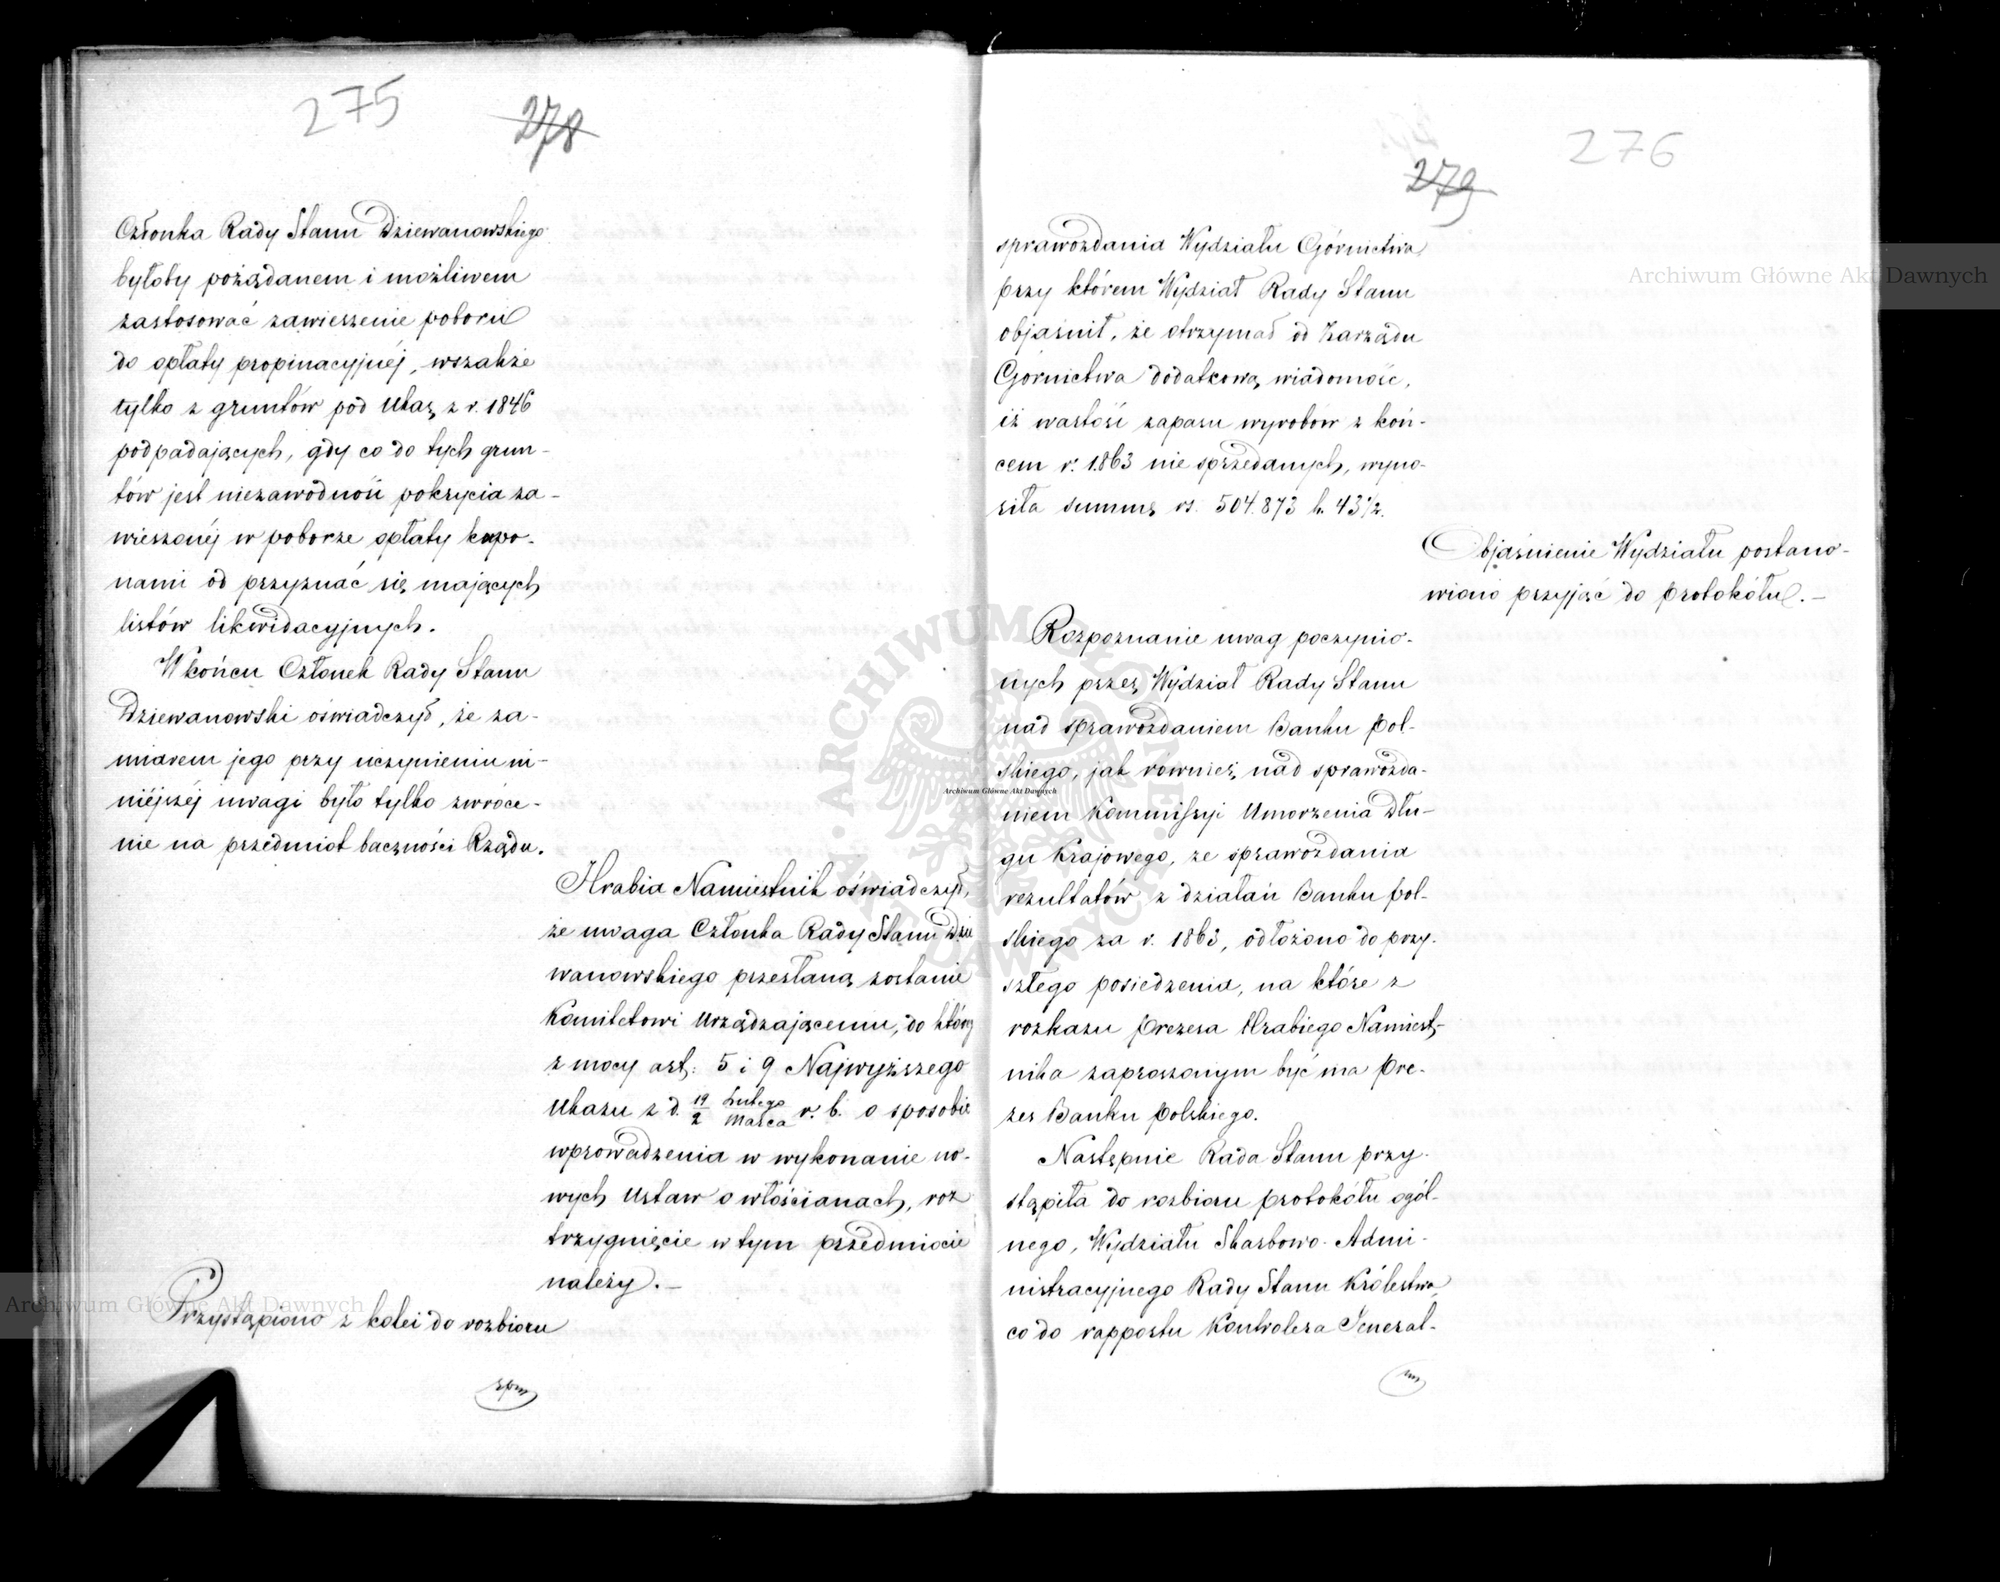 275
278
Członka Rady Stanu Dziewanowskiego
byłoby pożądanem i możliwem
zastosować zawieszenie poboru
do opłaty propinacyjnéj, wszakże
tylko z gruntów pod Ukaz z r. 1846
podpadających, gdy co do tych grun-
tów jest niezawodność pokrycia za-
wieszonéj w poborze opłaty kupo-
nami od przyznać się mających
listów likwidacyjnych.
W końcu Członek Rady Stanu
Dziewanowski oświadczył, że za-
miarem jego przy uczynieniu ni-
niéjszéj uwagi było tylko zwróce-
nie na przedmiot baczności Rządu.
Hrabia Namiestnik oświadczył,
że uwaga Członka Rady Stanu Dzie
wanowskiego przesłaną zostanie
Komitetowi Urządzającemu, do który
z mocy art: 5 i 9 Najwyższego
Ukazu z d. 19/2 Lutego/Marca r. b. o sposobie
wprowadzenia w wykonanie no-
wych Ustaw o włościanach, roz
trzygnięcie w tym przedmiocie
należy.—
Przystąpiono z kolei do rozbioru
276
279
sprawozdania Wydziału Górnictwa,
przy którem Wydział Rady Stanu
objaśnił, że otrzymał od Zarządu
Górnictwa dodatkową wiadomość,
iż wartość zapasu wyrobów z koń-
cem r. 1863 nie sprzedanych, wyno-
siła summę rs. 504.873 k. 43½.
Objaśnienie Wydziału postano-
wiono przyjąć do protokółu.—
Rozpoznanie uwag poczynio-
nych przez Wydział Rady Stanu
nad sprawozdaniem Banku Pol-
skiego, jak również nad sprawozda-
niem Kommissyi Umorzenia Dłu-
gu Krajowego, ze sprawozdania
rezultatów z działań Banku Pol-
skiego za r. 1863, odłożono do przy-
szłego posiedzenia, na które z
rozkazu Prezesa Hrabiego Namiest-
nika zaproszonym być ma Pre-
zes Banku Polskiego.
Następnie Rada Stanu przy-
stąpiła do rozbioru protokółu ogól-
nego, Wydziału Skarbowo-Admi-
nistracyjnego Rady Stanu Królestwa,
co do rapportu Kontrolera Jeneral-
Archiwum Główne Akt Dawnych
Archiwum Główne Akt Dawnych
Archiwum Główne Akt Dawnych
ARCHIWUM GŁÓWNE AKT DAWNYCH